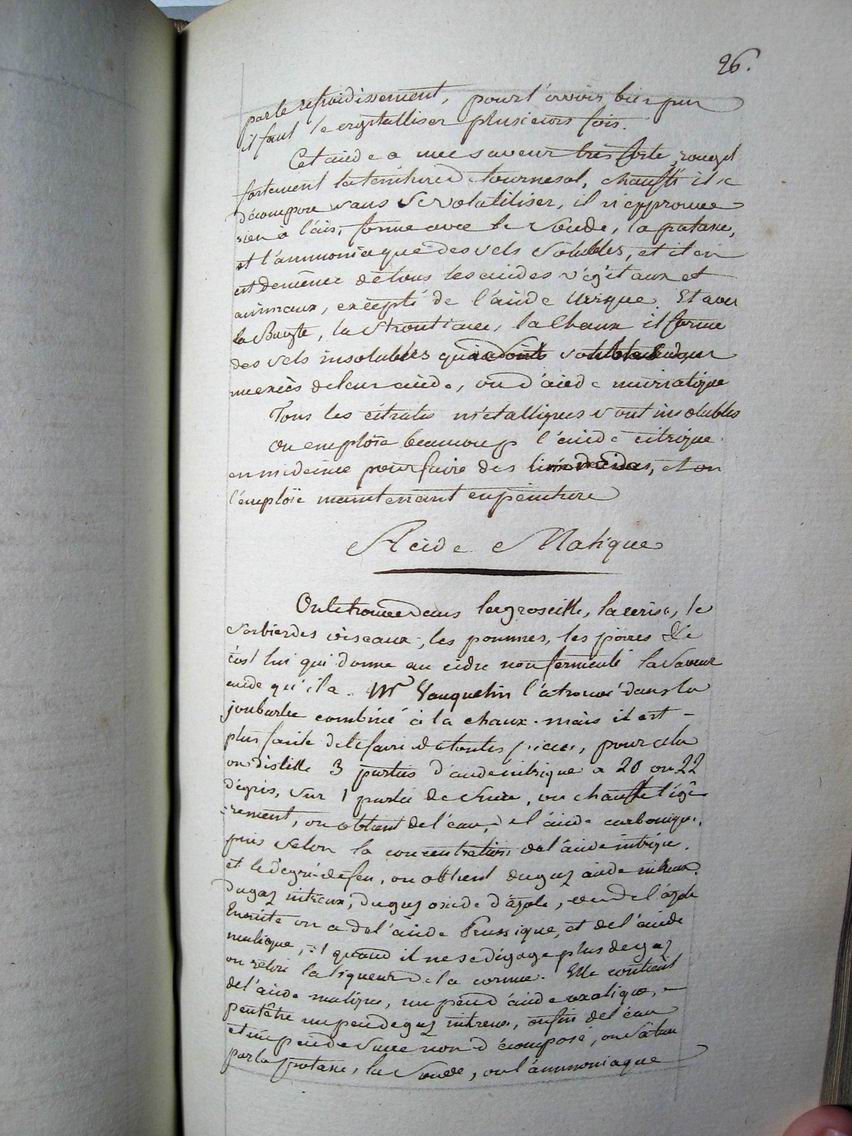 26.
par le refroidissement, pour l'avoir bien pur
il faut le crystalliser plusieurs fois.
Cet acide a une saveur très forte, rougit
fortement la teinture de tournesol, chauffé il se
décompose sans se volatiliser, il n'éprouve
rien à l'air, forme avec la Soude, la potasse,
et l'ammoniaque des sels solubles, et il en
est de même de tous les acides végétaux et
animaux, excepté de l'acide Urique. Et avec
la Baryte, la Strontiane, la Chaux il forme
des sels insolubles qui sont solubles dans
un excès de leur acide, ou d'acide muriatique
Tous les citrates métalliques sont insolubles
On emploie beaucoup l'acide citrique
en médecine pour faire des limonades, et on
l'emploie maintenant en peinture
Acide Malique
On le trouve dans la groseille, la cerise, le
Sorbier des oiseaux, les pommes, les poires &c
c'est lui qui donne au cidre non fermenté la saveur
acide qu'il a. Mr Vauquelin l'a trouvé dans la
joubarbe combiné à la chaux. mais il est
plus facile de le faire de toutes pièces, pour cela
on distille 3 parties d'acide nitrique a 20 ou 22
degrés, sur 1 partie de Sucre, on chauffe légè
-rement, on obtient de l'eau, de l'acide carbonique,
puis selon la concentration de l'acide nitrique.
et le degré de feu, on obtient du gaz acide nitreux.
du gaz nitreux, du gaz oxide d'azote, ou de l'azote
Ensuite on a de l'acide Prussique, et de l'acide
malique, quand il ne se dégage plus de gaz
on retire la liqueur de la cornue. Elle contient
de l'acide malique, un peu d'acide oxalique,
peutêtre un peu de gaz nitreux, enfin de l'eau
et un peu de Sucre non décomposé, on sature
par la potasse, la Soude, ou l'ammoniaque